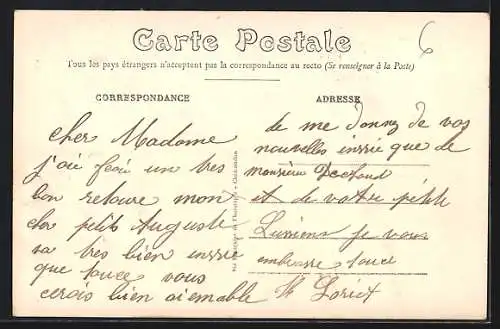 Carte Postale
Tous les pays étrangers n'acceptent pas la correspondance au recto (Se renseigner à la Poste)
CORRESPONDANCE
ADRESSE
6
cher Madame
j'ai feai un tres
bon retoure mon
cher petit Auguste
va tres bien inssie
que touce vous
cerois bien aiemable
de me donnez de vos
nouvelles inssie que de
monsieur
et de votre petite
Lusiens je vous
embrasse touce
H Loriot